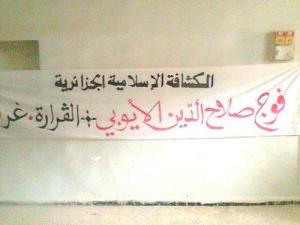 الكشافة الإسلامية الجزائرية
فوج صلاح الدين الأيوبي - القرارة . غر